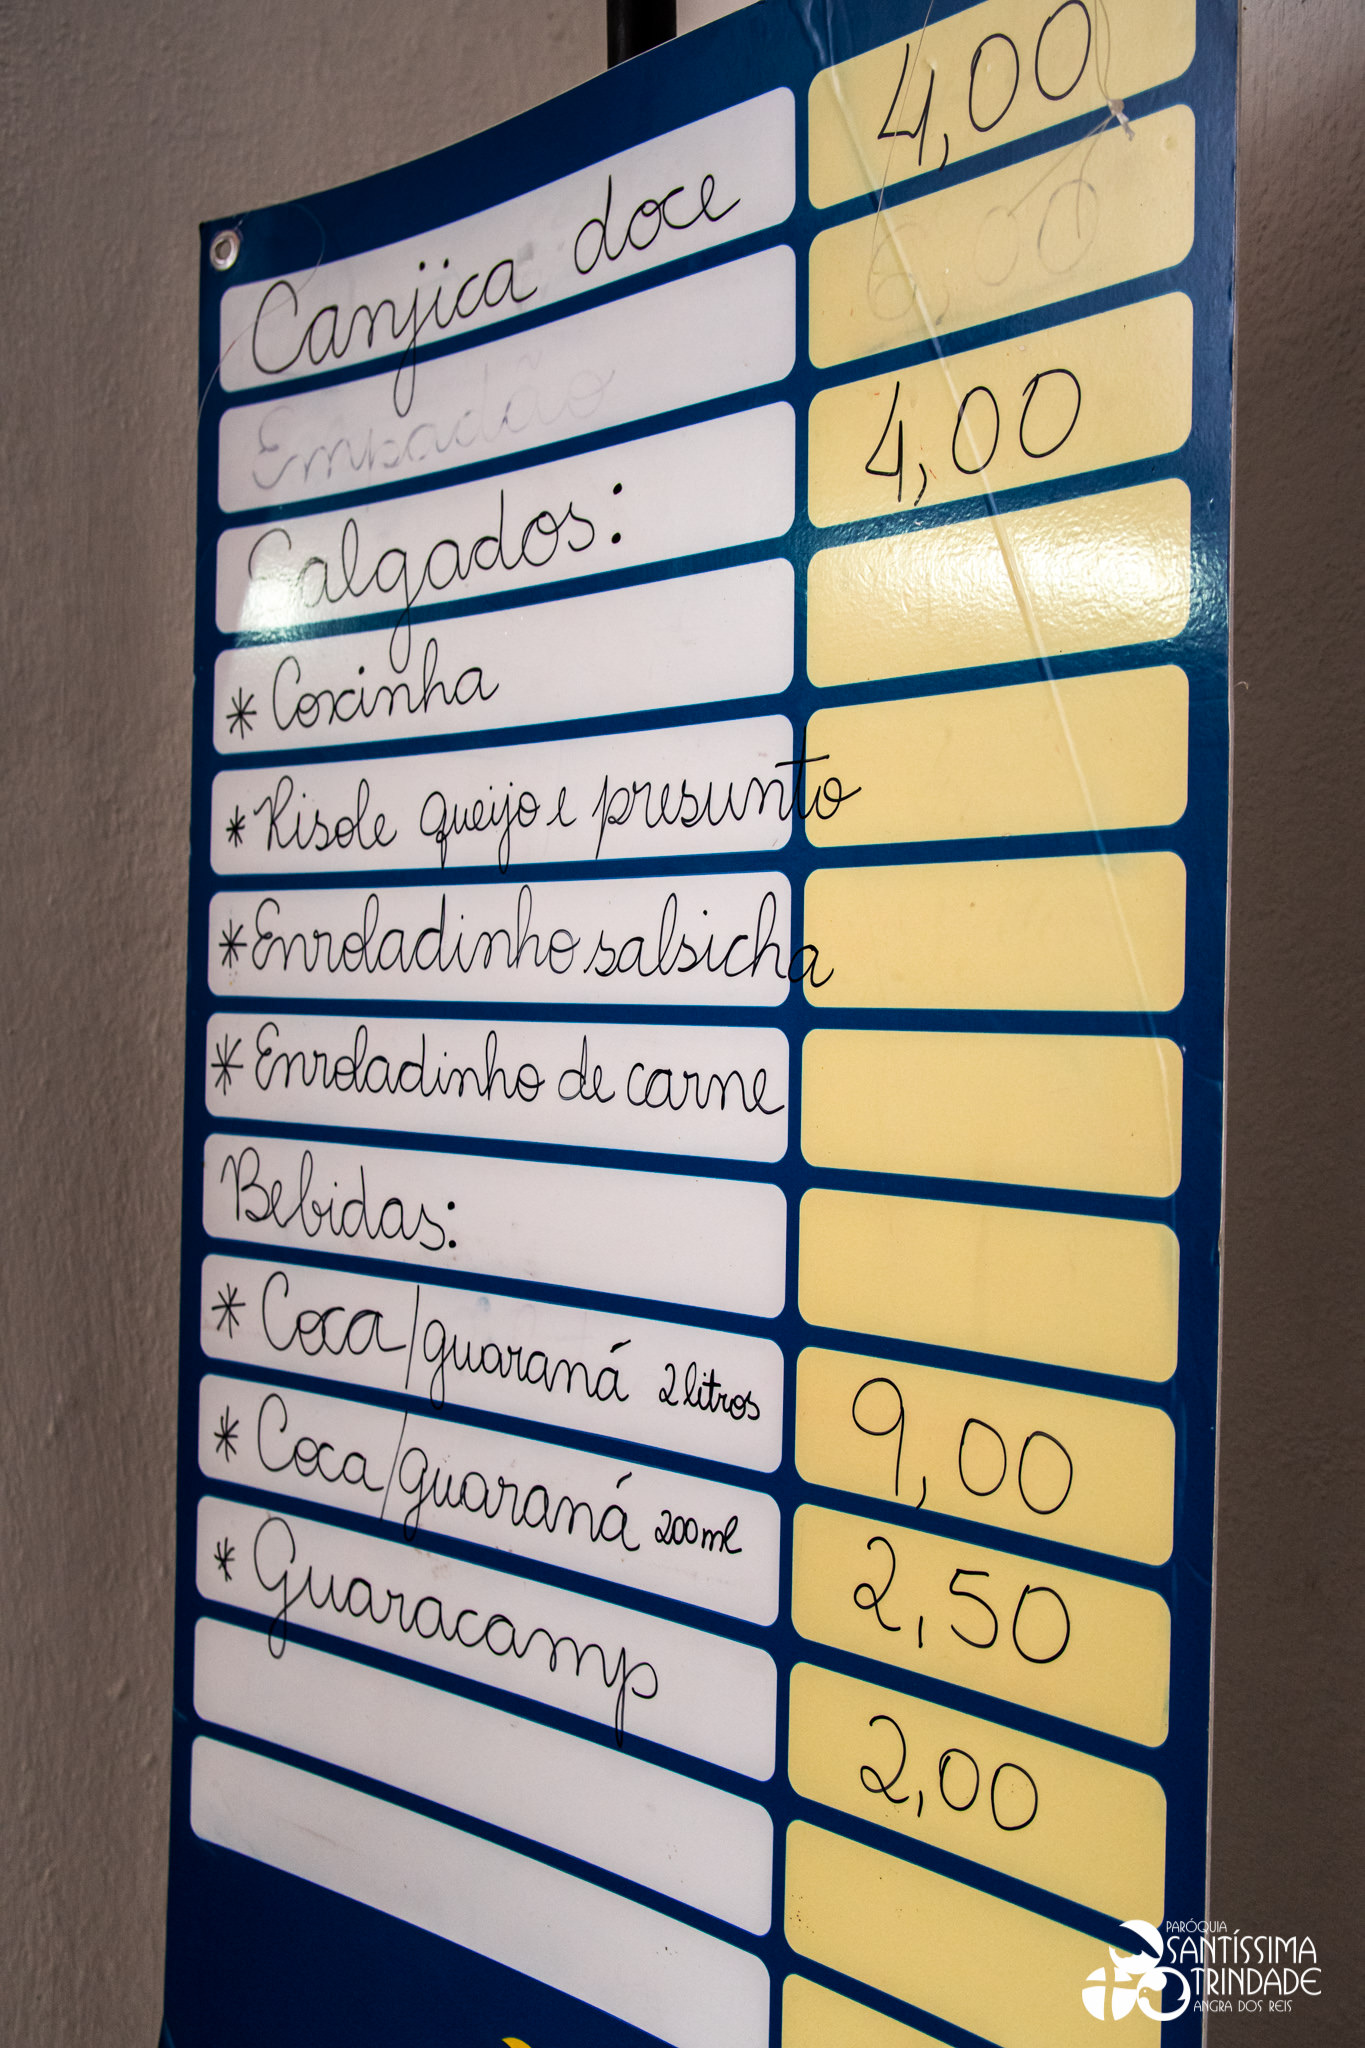 Canjica doce 4,00
Empadão 6,00
Salgados: 4,00
* Coxinha
* Risole queijo e presunto
* Enroladinho salsicha
* Enroladinho de carne
Bebidas:
* Coca/guaraná 2 litros 9,00
* Coca/guaraná 200 ml 2,50
* Guaracamp 2,00
PARÓQUIA
SANTÍSSIMA
TRINDADE
ANGRA DOS REIS